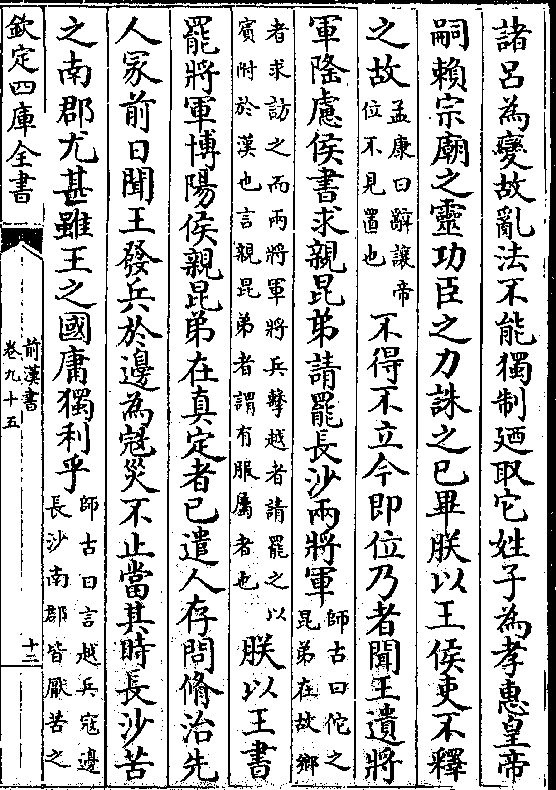 諸呂為變故亂法不能獨制廼取它姓子為孝惠皇帝
嗣賴宗廟之靈功臣之力誅之已畢朕以王侯吏不釋
之故孟康曰辭讓帝位不見置也不得不立今即位乃者聞王遺將
軍隆慮侯書求親昆弟請罷長沙兩將軍師古曰佗之昆弟在故鄉
者求訪之而兩將軍將兵擊越者請罷之以賓附於漢也言親昆弟者謂有服屬者也朕以王書
罷將軍博陽侯親昆弟在真定者已遣人存問脩治先
人冢前日聞王發兵於邊為寇災不止當其時長沙苦
之南郡尤甚雖王之國庸獨利乎師古曰言越兵寇邊長沙南郡皆厭苦之
欽定四庫全書
前漢書
卷九十五
十三